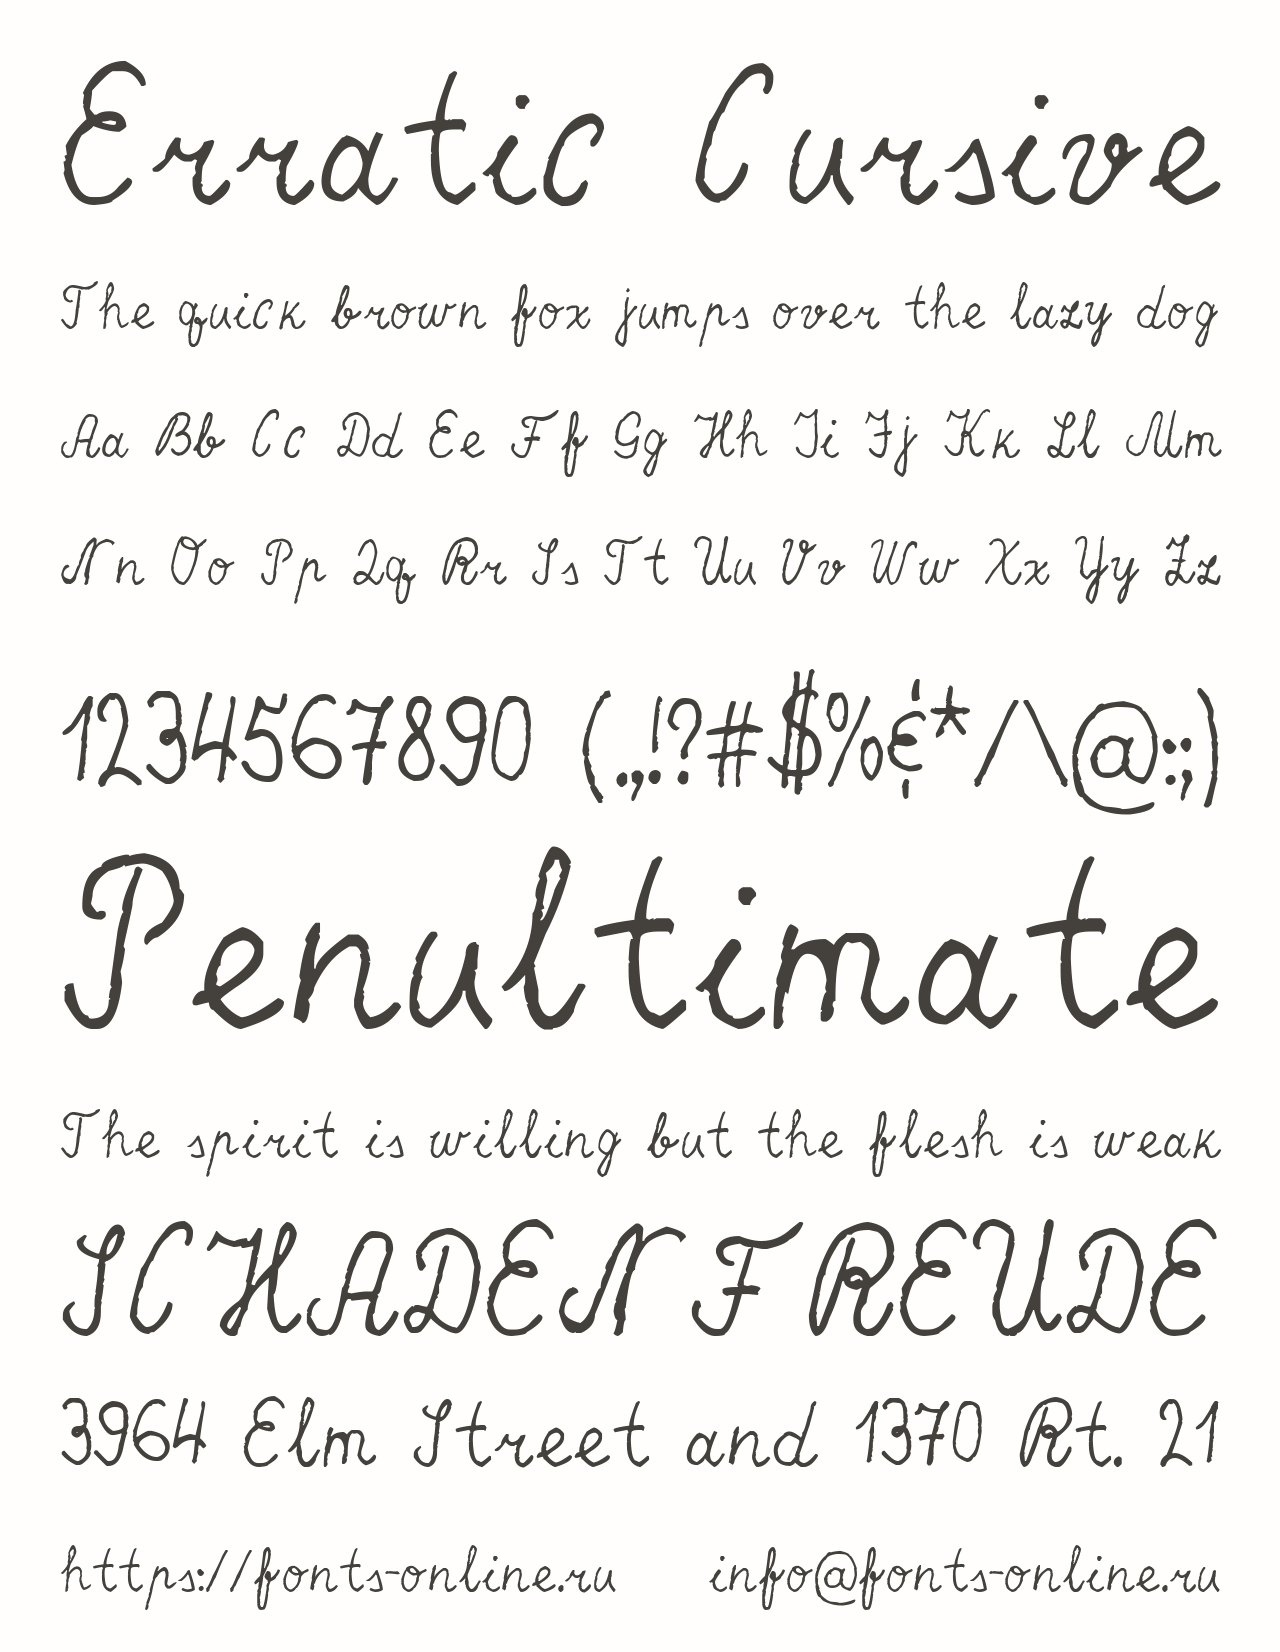 Erratic Cursive
The quick brown fox jumps over the lazy dog
Aa Bb Cc Dd Ee Ff Gg Hh Ii Jj Kk Ll Mm
Nn Oo Pp Qq Rr Ss Tt Uu Vv Ww Xx Yy Zz
1234567890 (.,.!?#$%&*/\@:;)
Penultimate
The spirit is willing but the flesh is weak
SCHADENFREUDE
3964 Elm Street and 1370 Rt. 21
https://fonts-online.ru info@fonts-online.ru